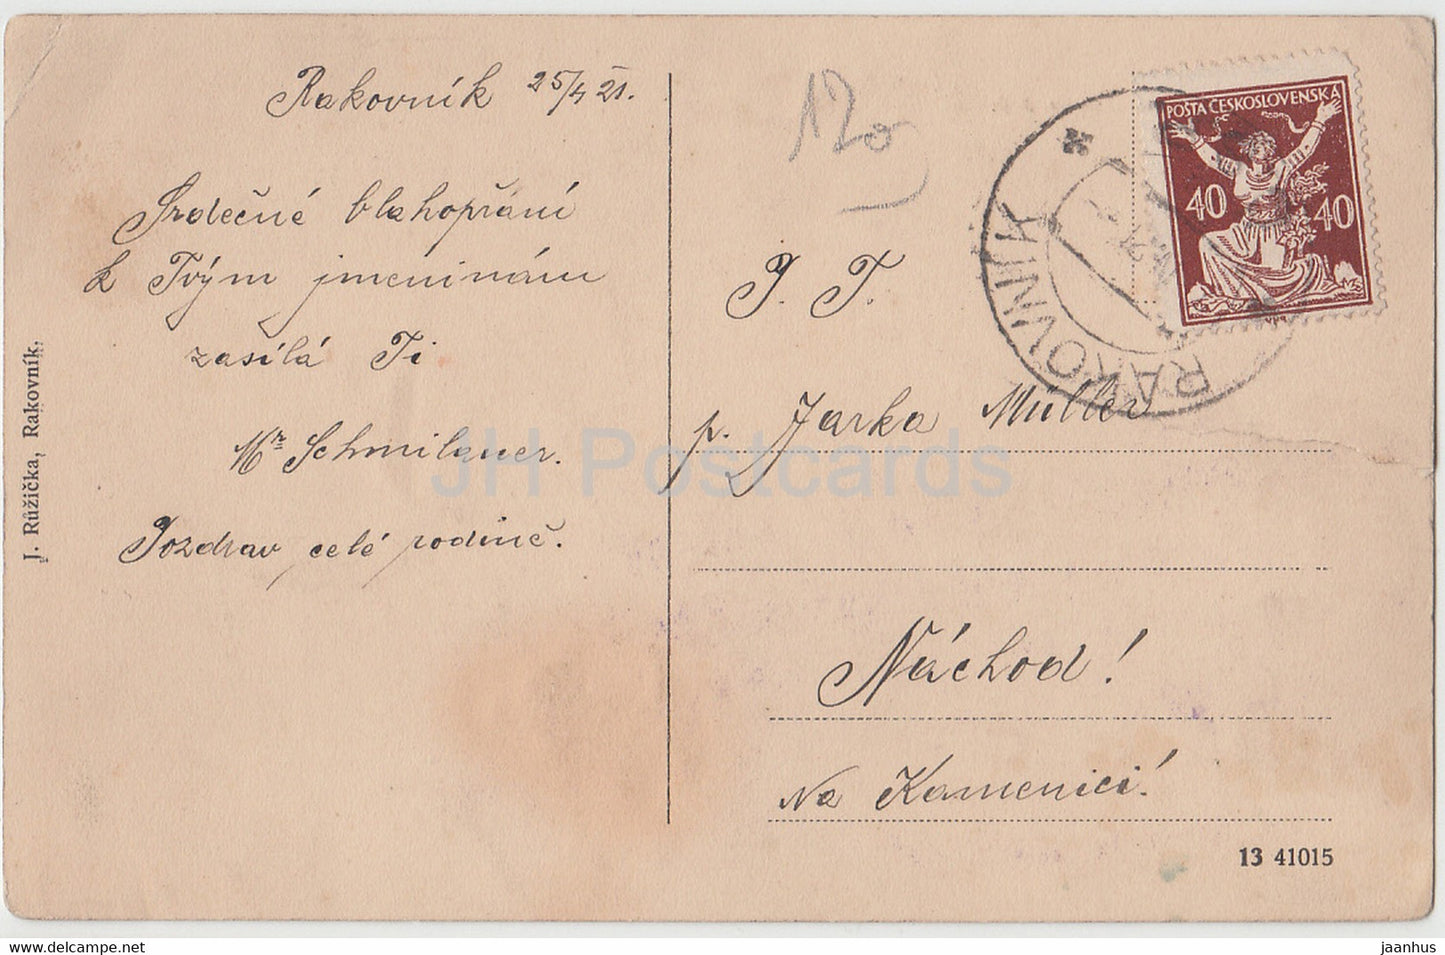 Rakovník 25/4 21.
Srdečné blahopřání
k Tvým jmeninám
zasílá Ti
Mr Schmilauer.
Pozdrav celé rodině.
J. Růžička, Rakovník.
120
POŠTA ČESKOSLOVENSKÁ
40 40
RAKOVNÍK
P. T.
p. Jarka Müller
Náchod!
Na Kamenici!
13 41015
JH Postcards
jaanhus